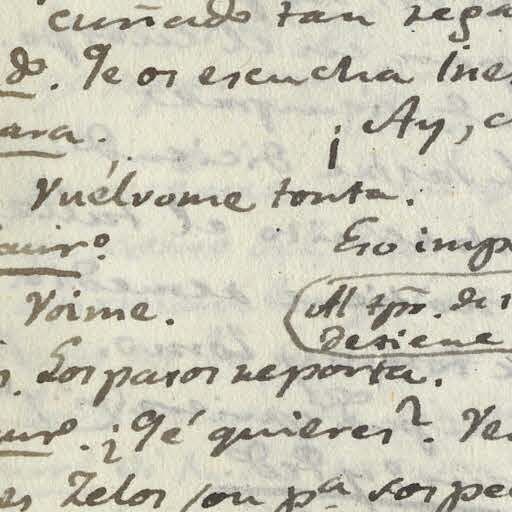 cuñado tan rega
do. Qe os escucha Ine
ara. ¡Ay, c
Vuélvome tonta.
Lauro. Eso imp
Voime. (Al tpo. de
detiene
Los pasos reporta.
auro. ¿Qé quieres?. Ve
es Zelos son pa sospe